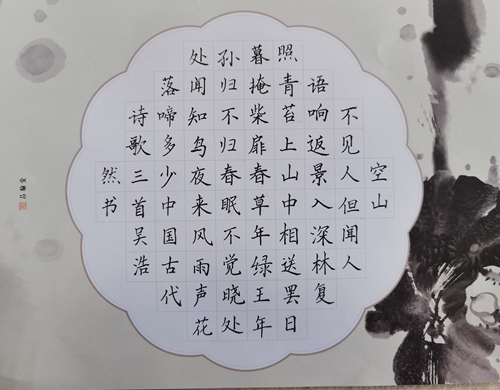 空山
不见人但闻人
语响返景入深林复
照青苔上山中相送罢日
暮掩柴扉春草年绿王年
孙归不归春眠不觉晓处
处闻知鸟夜来风雨声花
落啼多少中国古代
诗歌三首吴浩
然书